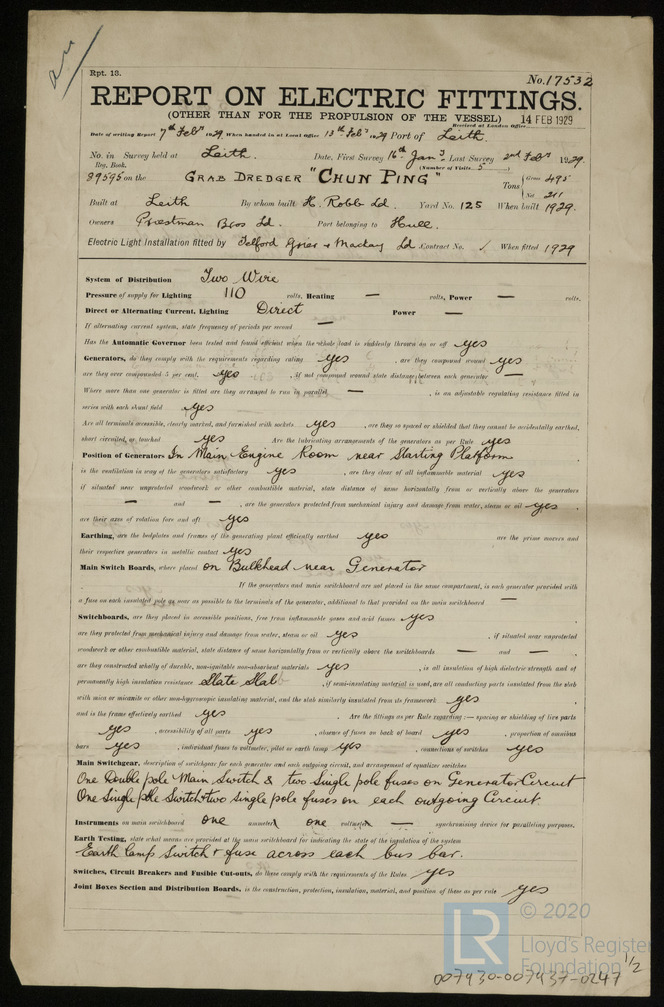 Rpt. 13.
No. 17532
REPORT ON ELECTRIC FITTINGS.
(OTHER THAN FOR THE PROPULSION OF THE VESSEL)
14 FEB 1929
Received at London Office
Date of writing Report 7th Febr 1929 When handed in at Local Office 13th Febr 1929 Port of Leith.
No. in Survey held at Leith. Date, First Survey 16th Jany Last Survey 2nd Febr 1929.
Reg. Book. (Number of Visits 5)
89595 on the GRAB DREDGER "CHUN PING" Tons Gross 495
Net 211
Built at Leith By whom built H. Robb Ld. Yard No. 125 When built 1929.
Owners Priestman Bros Ld. Port belonging to Hull.
Electric Light Installation fitted by Telford Grier & Mackay Ld Contract No. When fitted 1929
System of Distribution Two Wire
Pressure of supply for Lighting 110 volts, Heating — volts, Power — volts.
Direct or Alternating Current, Lighting Direct Power —
If alternating current system, state frequency of periods per second —
Has the Automatic Governor been tested and found efficient when the whole load is suddenly thrown on or off yes
Generators, do they comply with the requirements regarding rating yes, are they compound wound yes
are they over compounded 5 per cent. yes, if not compound wound state distance between each generator —
Where more than one generator is fitted are they arranged to run in parallel —, is an adjustable regulating resistance fitted in
series with each shunt field yes
Are all terminals accessible, clearly marked, and furnished with sockets yes, are they so spaced or shielded that they cannot be accidentally earthed,
short circuited, or touched yes Are the lubricating arrangements of the generators as per Rule yes
Position of Generators In Main Engine Room near Starting Platform
is the ventilation in way of the generators satisfactory yes, are they clear of all inflammable material yes
if situated near unprotected woodwork or other combustible material, state distance of same horizontally from or vertically above the generators
— and —, are the generators protected from mechanical injury and damage from water, steam or oil yes,
are their axes of rotation fore and aft yes
Earthing, are the bedplates and frames of the generating plant efficiently earthed yes are the prime movers and
their respective generators in metallic contact yes
Main Switch Boards, where placed on Bulkhead near Generator
If the generators and main switchboard are not placed in the same compartment, is each generator provided with
a fuse on each insulated pole as near as possible to the terminals of the generator, additional to that provided on the main switchboard —
Switchboards, are they placed in accessible positions, free from inflammable gases and acid fumes yes
are they protected from mechanical injury and damage from water, steam or oil yes, if situated near unprotected
woodwork or other combustible material, state distance of same horizontally from or vertically above the switchboards — and —,
are they constructed wholly of durable, non-ignitable non-absorbent materials yes, is all insulation of high dielectric strength and of
permanently high insulation resistance Slate Slab, if semi-insulating material is used, are all conducting parts insulated from the slab
with mica or micanite or other non-hygroscopic insulating material, and the slab similarly insulated from its framework yes
and is the frame effectively earthed yes. Are the fittings as per Rule regarding:— spacing or shielding of live parts
yes, accessibility of all parts yes, absence of fuses on back of board yes, proportion of omnibus
bars yes, individual fuses to voltmeter, pilot or earth lamp yes, connections of switches yes
Main Switchgear, description of switchgear for each generator and each outgoing circuit, and arrangement of equalizer switches
One Double pole Main Switch & two single pole fuses on Generator Circuit
One Single pole Switch + two single pole fuses on each outgoing Circuit.
Instruments on main switchboard one ammeter one voltmeter — synchronising device for paralleling purposes.
Earth Testing, state what means are provided at the main switchboard for indicating the state of the insulation of the system
Earth lamp Switch + fuse across each bus bar.
Switches, Circuit Breakers and Fusible Cut-outs, do these comply with the requirements of the Rules yes
Joint Boxes Section and Distribution Boards, is the construction, protection, insulation, material, and position of these as per rule yes
LR
© 2020
Lloyd's Register
Foundation
007930-007937-0247 1/2